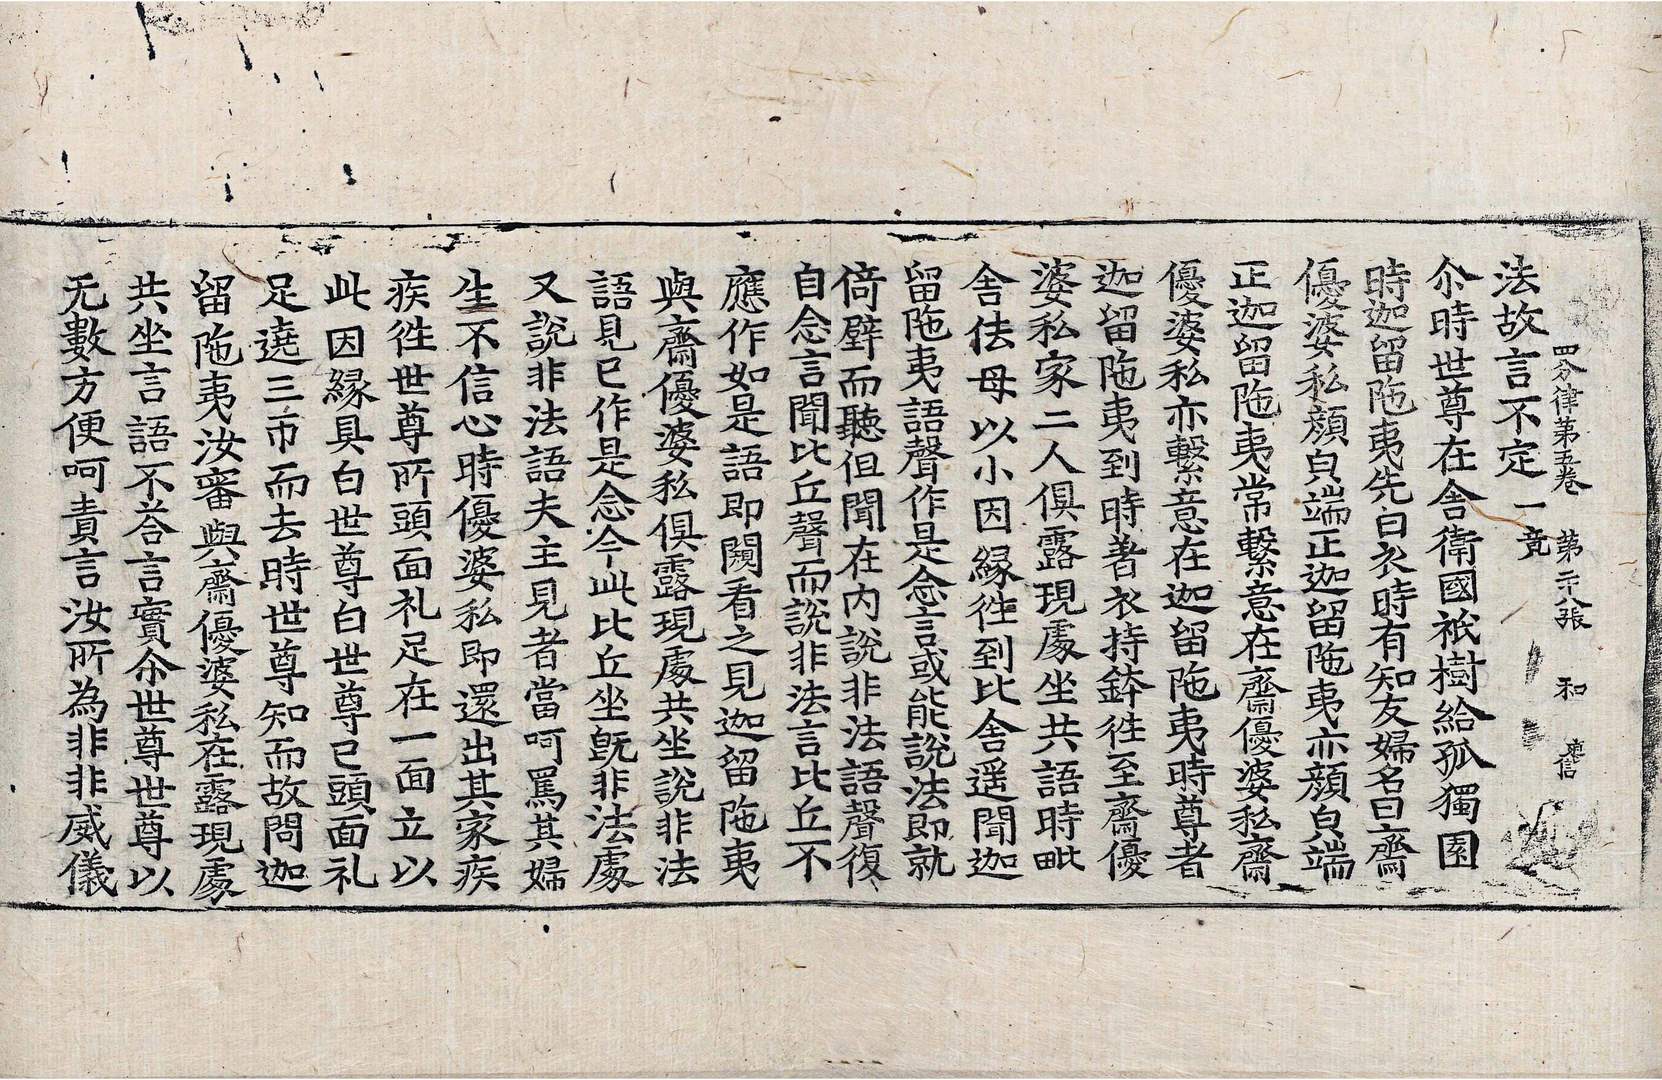 四分律第五卷 第二十八張 和
法故言不定一竟
尒時世尊在舍衛國祇樹給孤獨園
時迦留陁夷先白衣時有知友婦名曰齋
優婆私顏皃端正迦留陁夷亦顏皃端
正迦留陁夷常繫意在齋優婆私齋
優婆私亦繫意在迦留陁夷時尊者
迦留陁夷到時著衣持鉢徃至齋優
婆私家二人俱露現處坐共語時毗
舍佉母以小因緣徃到比舍遥聞迦
留陁夷語聲作是念言或能說法即就
倚壁而聽但聞在內說非法語聲復
自念言聞比丘聲而說非法言比丘不
應作如是語即闚看之見迦留陁夷
與齋優婆私俱露現處共坐說非法
語見已作是念今此比丘坐旣非法處
又說非法語夫主見者當呵罵其婦
生不信心時優婆私即還出其家疾
疾徃世尊所頭面礼足在一面立以
此因緣具白世尊白世尊已頭面礼
足遶三帀而去時世尊知而故問迦
留陁夷汝審與齋優婆私在露現處
共坐言語不荅言實尒世尊世尊以
无數方便呵責言汝所為非非威儀